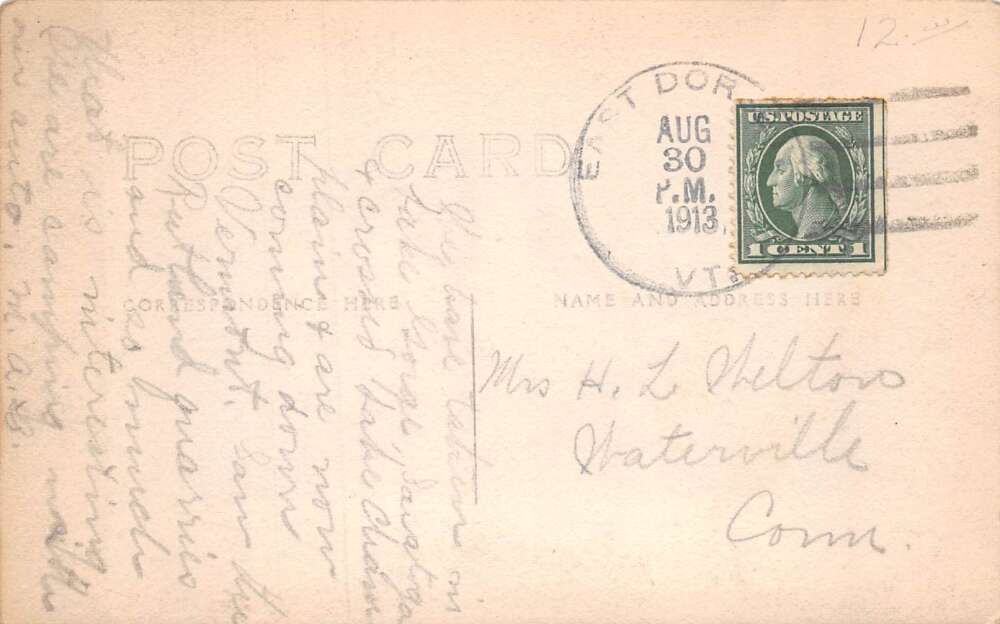 12.00
EAST DOR
AUG
30
P.M.
1913.
VT.
U.S. POSTAGE
1 CENT 1
POST CARD
CORRESPONDENCE HERE
NAME AND ADDRESS HERE
Mrs H. L. Welton
Waterville
Conn.
We have taken in
Lake George, Saratoga
& crossed Lake Cham
plain & are now
coming down
Vermont. Saw the
Rutland quarries
and so much
that is interesting
We are camping with
an auto. M. A. B.